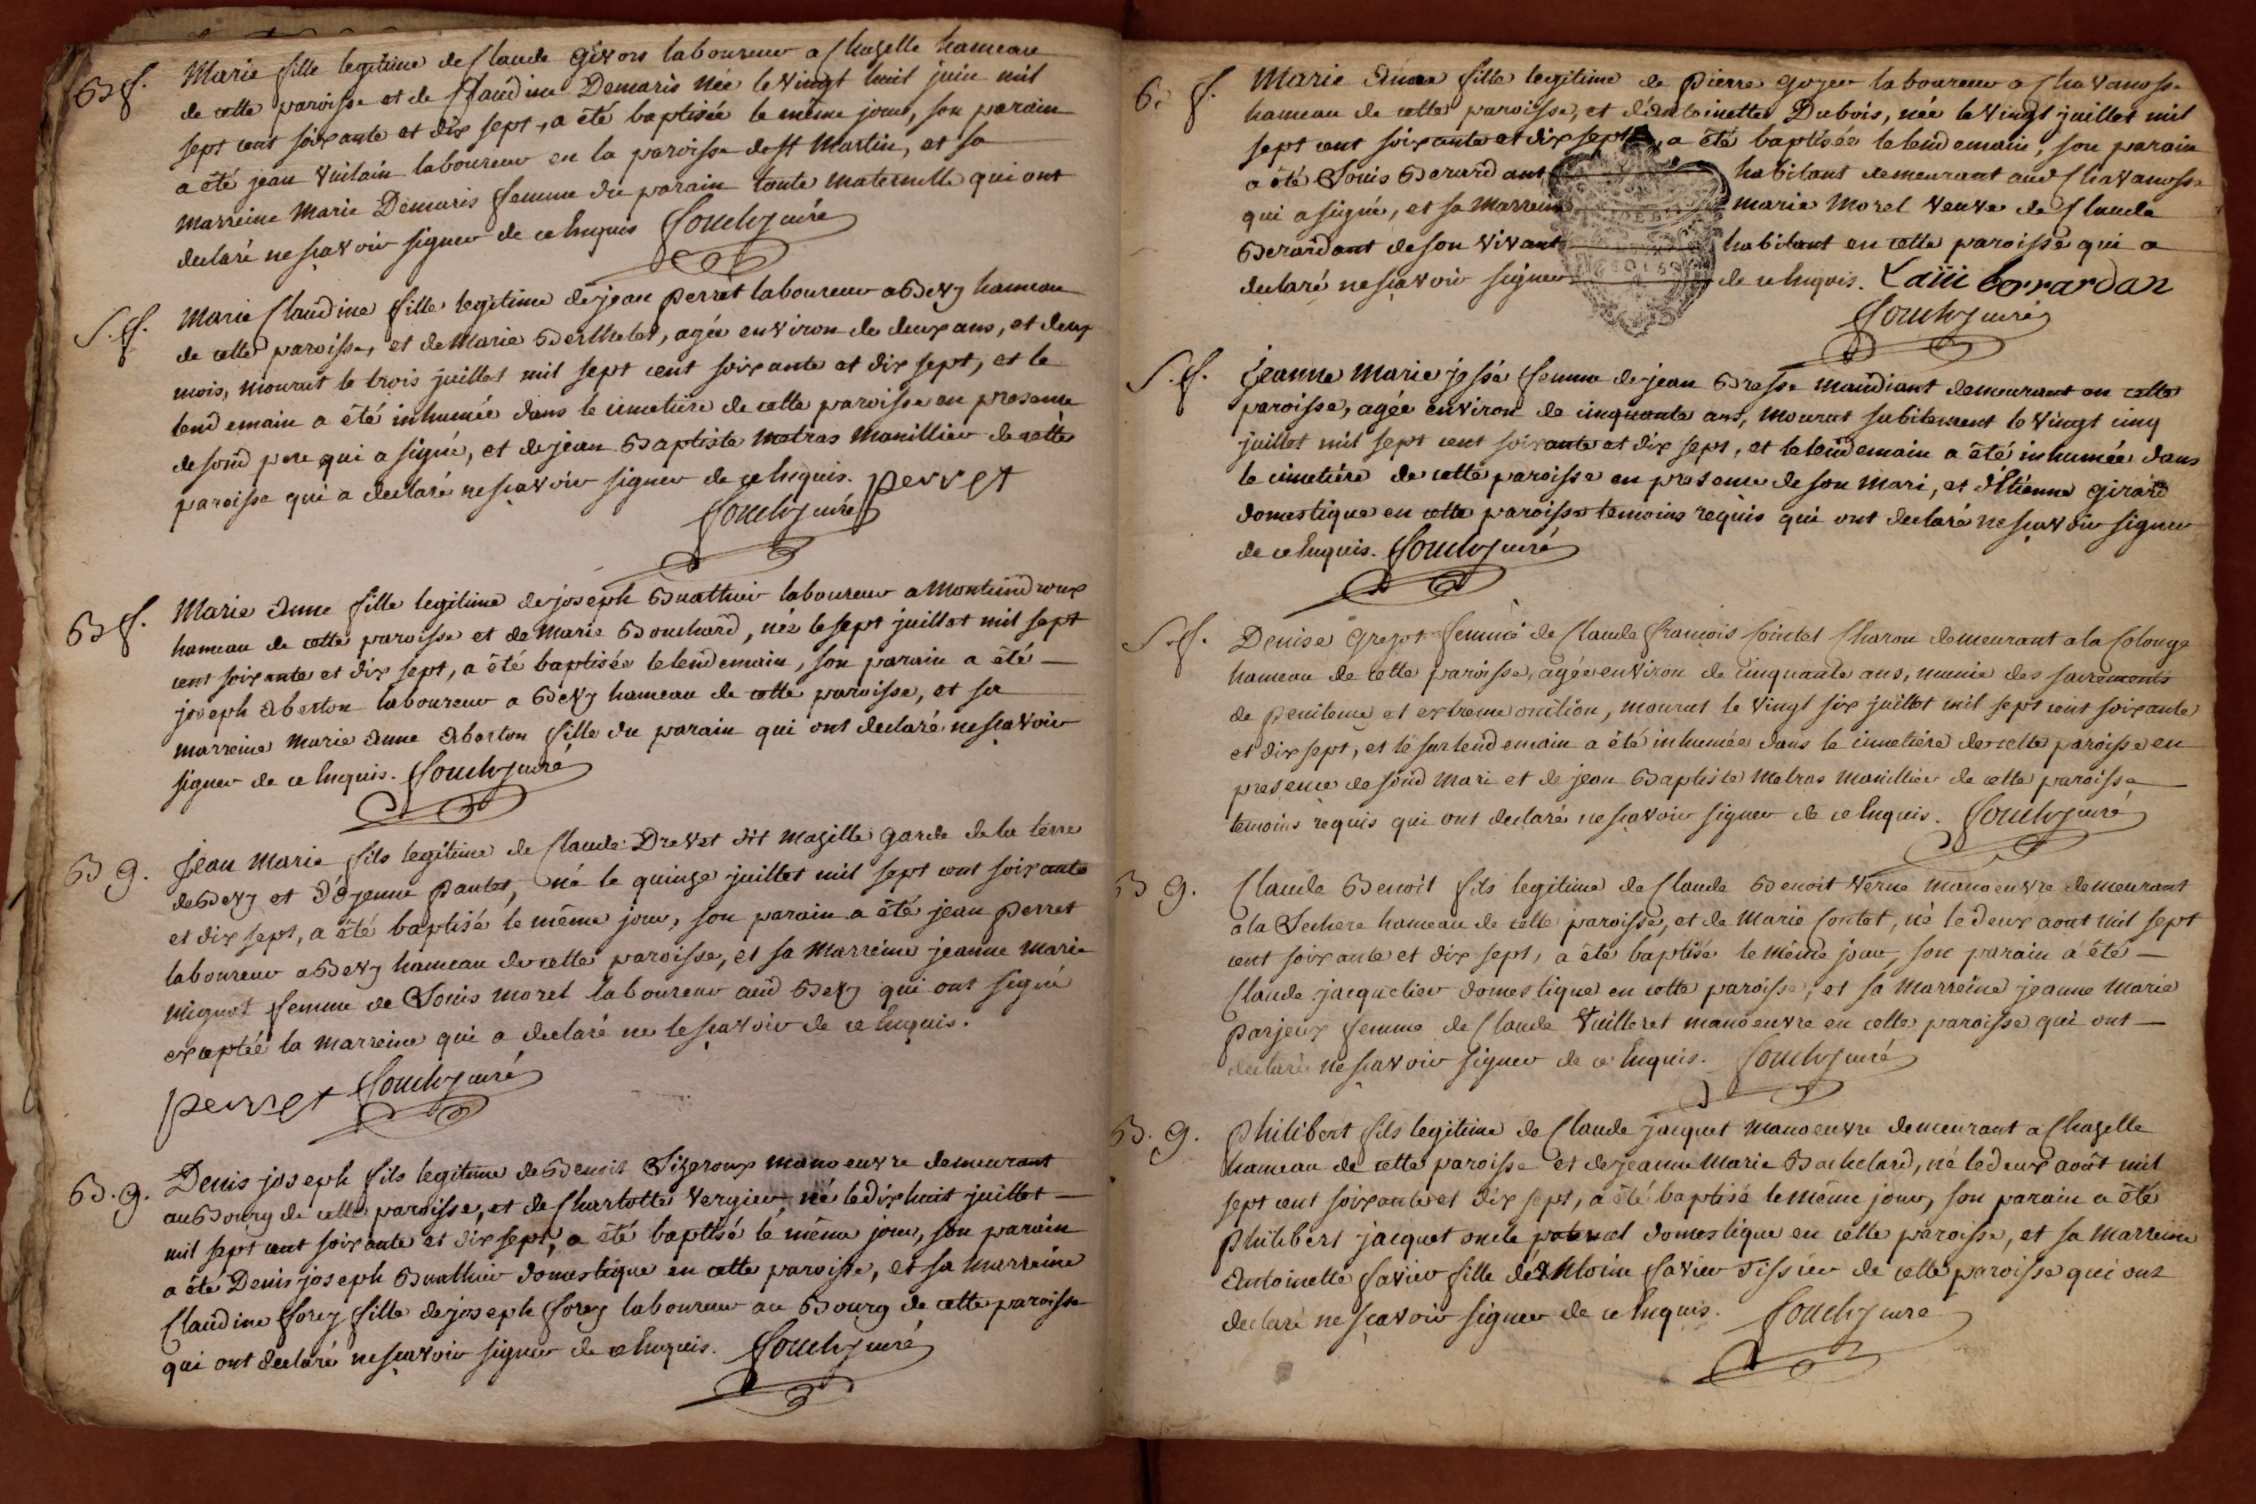 B f. Marie fille legitime de Claude Givors laboureur a Chazelle hameau
de cette paroisse et de Claudine Demaris née le vingt huit juin mil
sept cent soixante et dix sept, a été baptisée le même jour, son parain
a été jean Vuilain laboureur en la paroisse de st Martin, et sa
marreine Marie Demaris femme du parain tante maternelle qui ont
declaré ne sçavoir signer de ce Enquis Couchy curé
S. f. Marie Claudine fille legitime de jean Perret laboureur a Bevy hameau
de cette paroisse, et de Marie Berthelet, agée environ de deux ans, et deux
mois, mourut le trois juillet mil sept cent soixante et dix sept, et le
lendemain a été inhumée dans le cimetière de cette paroisse en presence
de sond pere qui a signé, et de jean Baptiste Metras Manillier de cette
paroisse qui a declaré ne sçavoir signer de ce Enquis. perret
Couchy curé
B f. Marie Anne fille legitime de joseph Buathier laboureur a Montcindroux
hameau de cette paroisse et de Marie Bouchard, née le sept juillet mil sept
cent soixante et dix sept, a été baptisée le lendemain, son parain a été
joseph Aberton laboureur a Bevy hameau de cette paroisse, et sa
marreine Marie Anne Aberton fille du parain qui ont declaré ne sçavoir
signer de ce Enquis. Couchy curé
B g. Jean Marie fils legitime de Claude Drevet dit Mazille garde de la terre
de Bevy et d'Ejenne Pautet, né le quinze juillet mil sept cent soixante
et dix sept, a été baptisé le même jour, son parain a été jean Perret
laboureur a Bevy hameau de cette paroisse, et sa Marreine jeanne Marie
Mignot femme de Louis Morel laboureur aud Bevy qui ont signé
exceptée la marreine qui a declaré ne le sçavoir de ce Enquis.
perret Couchy curé
B. g. Denis joseph fils legitime de Benoit Ligeroux manoeuvre demeurant
au Bourg de cette paroisse, et de Charlotte Vergier, né le dix huit juillet
mil sept cent soixante et dix sept, a été baptisé le même jour, son parain
a été Denis joseph Buathier domestique en cette paroisse, et sa marreine
Claudine Corey fille de joseph Corey laboureur au Bourg de cette paroisse
qui ont declaré ne sçavoir signer de ce Enquis. Couchy curé
B. f. Marie Anne fille legitime de Pierre Goyer laboureur a Chavanosse
hameau de cette paroisse, et d'Antoinette Dubois, née le vingt juillet mil
sept cent soixante et dix sept, a été baptisée le lendemain, son parain
a été Louis Berardant habitant demeurant aud Chavanosse
qui a signé, et sa Marreine marie Morel veuve de Claude
Berardant de son vivant habitant en cette paroisse qui a
declaré ne sçavoir signer de ce Enquis. Laiii berrardan
Couchy curé
S. f. Jeanne Marie jossé femme de jean Bresse mandiant demeurant en cette
paroisse, agée environ de cinquante ans, mourut subitement le vingt cinq
juillet mil sept cent soixante et dix sept, et le lendemain a été inhumée dans
le cimetière de cette paroisse en presence de son Mari, et d'Etienne girard
domestique en cette paroisse temoins requis qui ont declaré ne sçavoir signer
de ce Enquis. Couchy curé
S. f. Denise Grezot femme de Claude françois Cointet Charon demeurant a la Colonge
hameau de cette paroisse, agée environ de cinquante ans, munie des sacrements
de penitence et extreme onction, mourut le vingt six juillet mil sept cent soixante
et dix sept, et le surlendemain a été inhumée dans le cimetiere de cette paroisse en
presence de sond Mari et de jean Baptiste Metras Manillier de cette paroisse
temoins requis qui ont declaré ne sçavoir signer de ce Enquis. Couchy curé
B g. Claude Benoit fils legitime de Claude Benoit Verne manoeuvre demeurant
a la Sechere hameau de cette paroisse, et de Marie Contet, né le deux aout mil sept
cent soixante et dix sept, a été baptisé le même jour, son parain a été
Claude jacquelier domestique en cette paroisse, et sa Marreine jeanne Marie
Parjeux femme de Claude Vuilleret manoeuvre en cette paroisse qui ont
declaré ne sçavoir signer de ce Enquis. Couchy curé
B. g. Philibert fils legitime de Claude jacquet manoeuvre demeurant a Chazelle
hameau de cette paroisse et de jeanne Marie Bachelard, né le deux août mil
sept cent soixante et dix sept, a été baptisé le même jour, son parain a été
Philibert jacquet oncle paternel domestique en cette paroisse, et sa Marreine
Antoinette Favier fille d'Antoine Favier Tissier de cette paroisse qui ont
declaré ne sçavoir signer de ce Enquis. Couchy curé